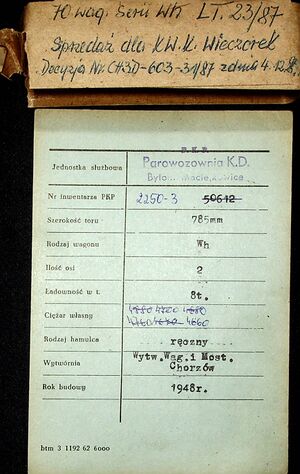 10 wag. Serii Wh LT. 23/87
Sprzedaż dla K.W.K. Wieczorek
Decyzja Nr. CH3D-603-31/87 z dnia 4.12.8
P.K.P.
Jednostka służbowa Parowozownia K.D.
Bytom Maciejkowice
Nr inwentarza PKP 2250-3 50612
Szerokość toru 785mm
Rodzaj wagonu Wh
Ilość osi 2
Ładowność w t. 8t.
Ciężar własny 4880 4700 4680
4660
Rodzaj hamulca ręczny
Wytwórnia Wytw.Wag.i Most.
Chorzów
Rok budowy 1948r.
btm 3 1192 62 6000